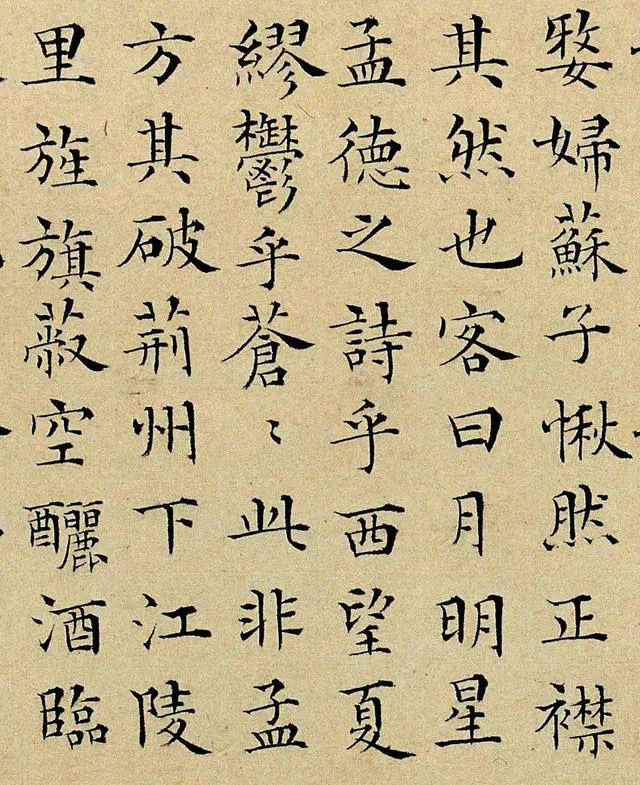 嫠婦蘇子愀然正襟
其然也客曰月明星
孟德之詩乎西望夏
繆鬱乎蒼〻此非孟
方其破荊州下江陵
里旌旗蔽空釃酒臨